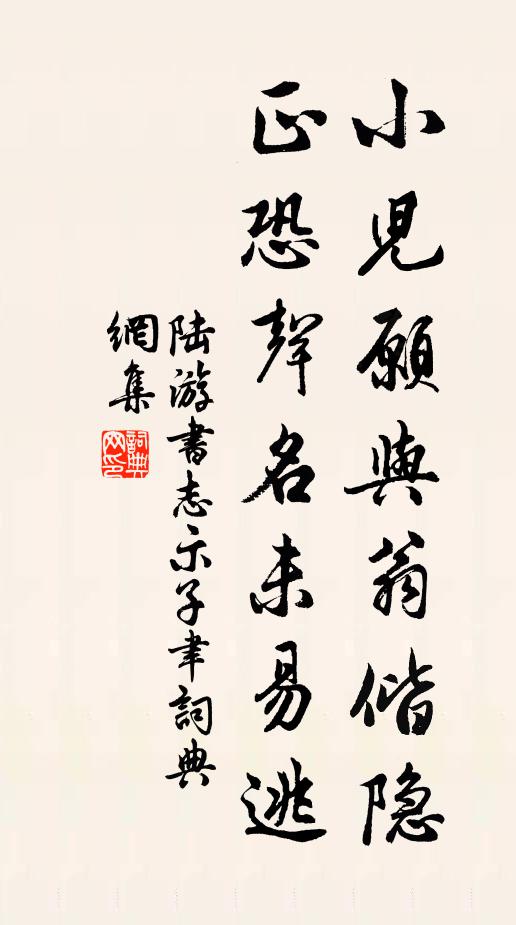 小兒願與翁偕隐
正恐聲名未易逃
陆游書志示子聿詞典
網集
詞典网印